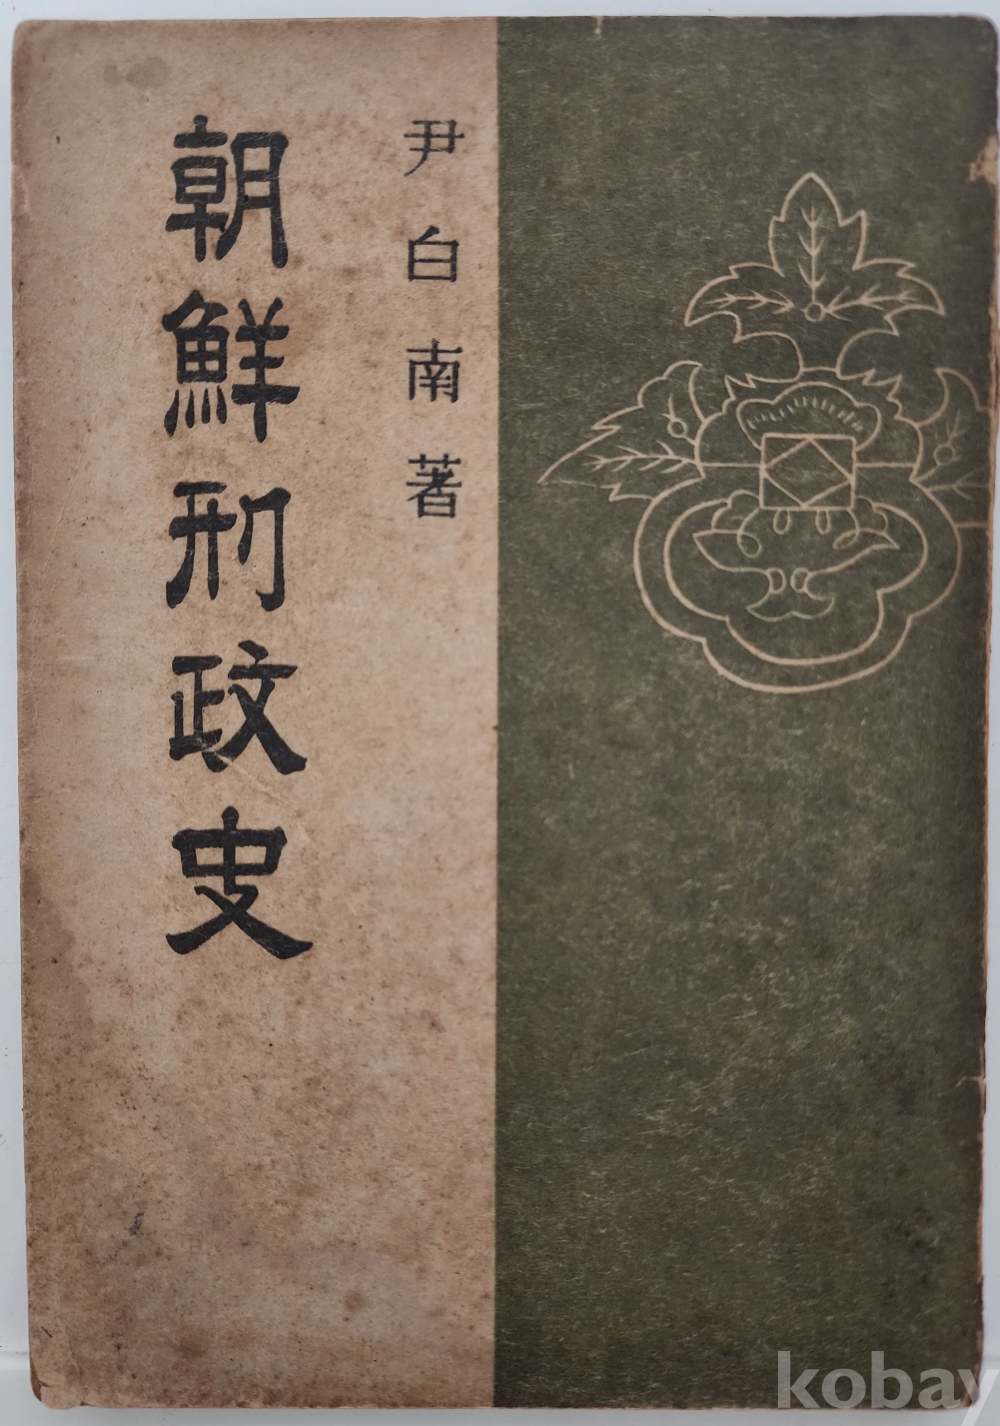 尹白南著
朝鮮刑政史
kobay